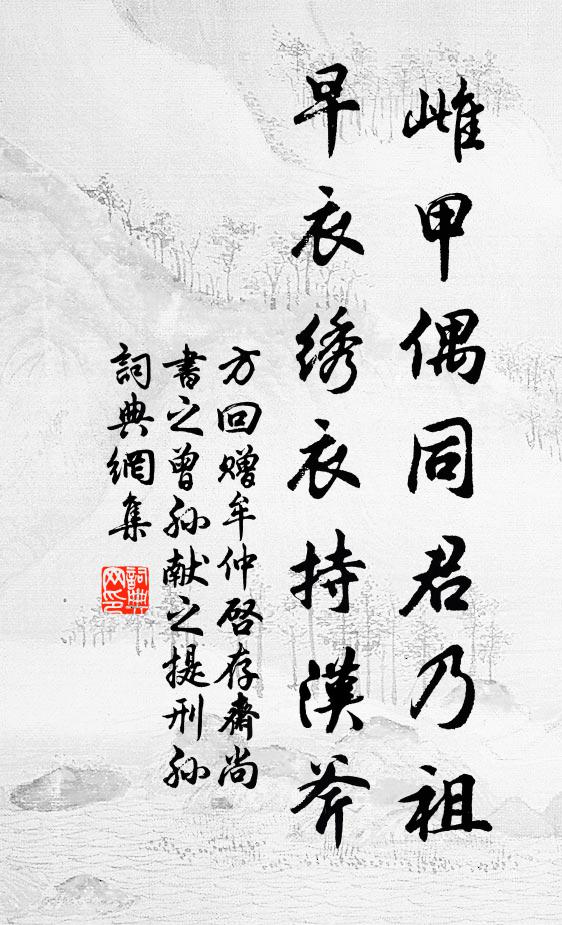 雌甲偶同君乃祖
早衣绣衣持漢斧
方回赠牟仲啓存齋尚
書之曾孙献之提刑孙
詞典網集
詞典
网印